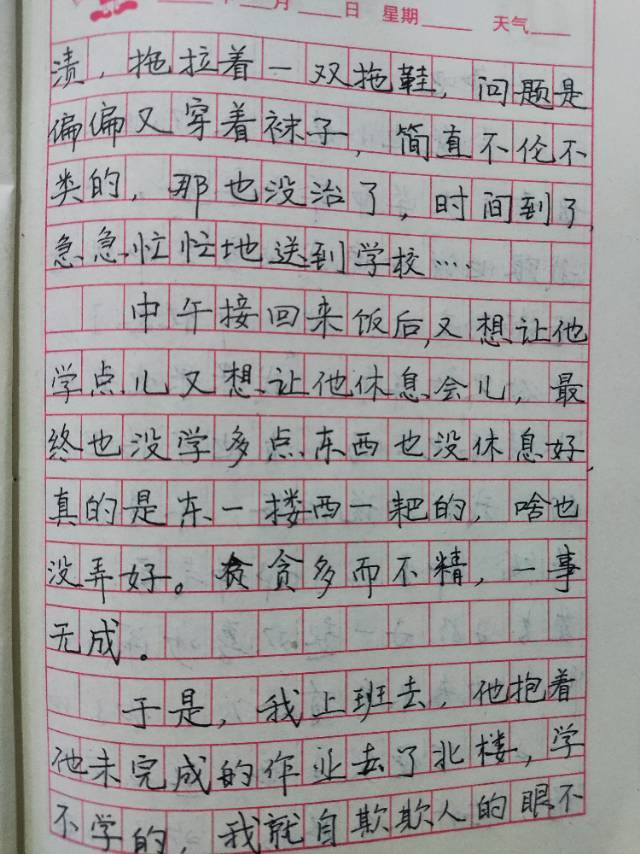 年 月 日 星期 天气
渍，拖拉着一双拖鞋，问题是
偏偏又穿着袜子，简直不伦不
类的，那也没治了，时间到了，
急急忙忙地送到学校…
中午接回来饭后，又想让他
学点儿又想让他休息会儿，最
终也没学多点东西也没休息好，
真的是东一搂西一耙的，啥也
没弄好。贪多而不精，一事
无成。
于是，我上班去，他抱着
他未完成的作业去了北楼，学
不学的，我就自欺欺人的眼不